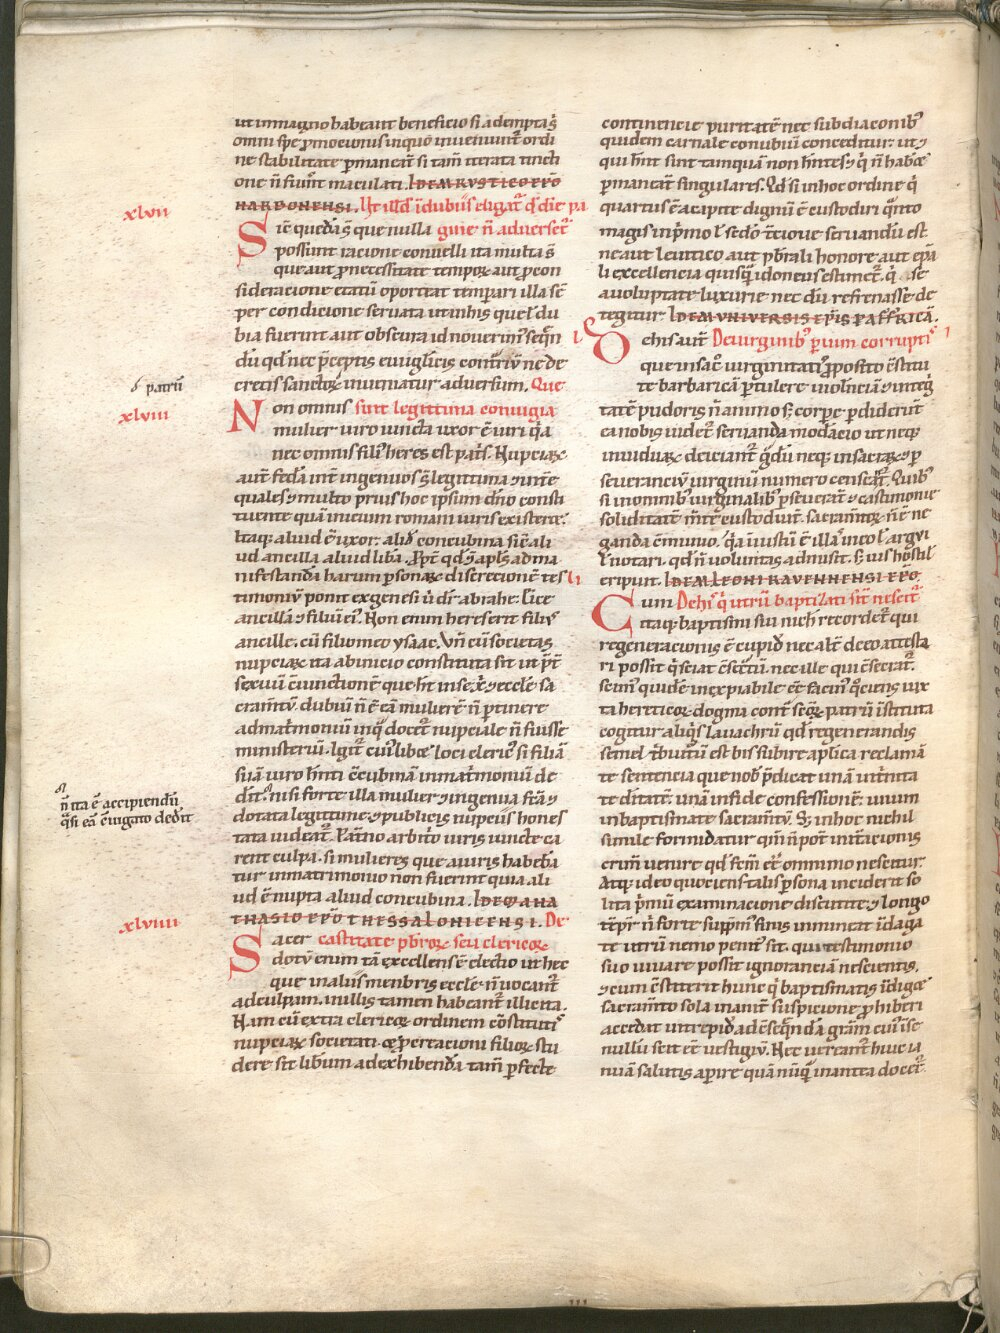 ut inmagno habeant beneficio si adempta ſ
omni spe p̄mocionis inquo inueniunt̄ ordi
ne stabilitate p̄maneāt si tam̄ iterata tinch
one n̄ fiunt maculati. IDEM RVSTICO EP̄O
NARBONENSI. Ut illd̄ ī dubiis eligat̄ qd̄ die pa
xlvii
Sic̄ quedā ſ que nulla guie n̄ adverset̄
possunt racione conuelli ita multa ſ
que aut p̄ necessitate tempoꝝ aut p̄ con
sideracione etatū oporteat temp̄ari illa sē
per condicione seruata ut inhis que ł du
bia fuerint aut obscura id nouerim̄ seqn̄
dū qd̄ nec p̄ceptis euuglicis contriū nec de
cretis sanctoꝝ inueniatur adversum. Que
patrū
xlviii
Non omnis sint legittima conuigia
mulier uiro iuncta uxor ē uiri qa
nec omnis filꝰ heres est patꝭ. Nupciaꝝ
aut̄ fedā int̄ ingenuos ſ legitima ⁊ int̄
quales ⁊ multo prius hoc ipsum dn̄o consti
tuente quā inicium romani iuris existeret.
Itaq; aliud ē uxor. aliđ concubina sic̄ ali
ud ancilla aliud libā. Ppt̄ qd̄ ⁊ apls̄ ad ma
nifestandā harum p̄sonaꝝ discrecionē tes
timoniū ponit exgenesi u dr̄ abrahe. Eice
ancillā ⁊ filiū eiꝰ. Non enim heres erit filiꝰ
ancille. cū filio meo ysaac. Vn̄ cū societas
nupciaꝝ ita abinicio constituta sit ut p̄t̄
sexuū cū iunctionē que ht̄ inse xp̄i ⁊ ecclē sa
cram̄tū. dubiū n̄ ē eā mulierē n̄ p̄tinere
admatrimoniū inq̄ docet̄ nupciale n̄ fuisse
ministeriū. Igit̄ cuiꝰlibet loci clericꝰ si filiā
suā uiro hn̄ti cc̄ubinā inmat̄moniū de
dit. nisi forte illa mulier ⁊ ingenua fc̄a ⁊
dotata legittime ⁊ publicis nupciis hones
tata uideat̄. Pat̄no arbitrio uiris iuncte ca
rent culpa. si mulieres que auiris habebā
tur inmatrimonio non fuerint quia ali
ud ē nupta aliud concubina. IDEM ANA
n̄ ita ē accipiendū
q̄si eā c̄iugato dedit
THASIO EP̄O THESSALONICENSI. De
xlviiii
Sacer castitate pbr̄oꝝ seu clericoꝝ
dotū enim tā excellens ē electio ut hec
que in aliis menbris ecclē n̄ uocant̄
adculpam. in illis tamen habeant̄ illicita.
Nam cū extra clericoꝝ ordinem cōstitutiꝭ
nupciaꝝ societati ⁊ p̄creacioni filioꝝ stu
dere sit lib̄um ad exhibendā tam̄ p̄fecte
continencie puritatē nec subdiaconibꝰ
quidem carnale conubiū conceditur. ut ⁊
qui hn̄t sint tanquā non hn̄tes ⁊ q̄ n̄ habēt
p̄maneāt singulares. Qd̄ si inhoc ordine q̄
quartus ē acapite dignū ē custodiri q̄nto
magis inp̄mo ł sedo t̄cioue seruandū est
ne aut leuitico aut pbr̄ali honore aut ep̄a
li excellencia quisq̄ idoneus estimet̄. q̄ se
auoluptate luxurie nec dū refrenasse de
tegitur. IDEM VNIVERSIS EP̄IS P AFFRICĀ.
l
De his aut̄ De uirginibꝰ p̄ uim corrupti ꝭ
que in sac̄ uirginitatiꝭ p̄posito c̄stitu
te barbaricā p̄tulere uiolnciā ⁊ inteḡ
tatē pudoris n̄ animo s; corpe p̄diderūt
ea nobis uidet̄ seruanda mod̄acio ut neq;
inuiduaꝝ deiciant̄ ḡdū neq; insacraꝝ ⁊ p̄
seueranciū uirginū numero censeat̄. Quibꝰ
si inomnibꝰ uirginalibꝰ p̄seuerat̄ ⁊ castimonie
soliditatē m̄te custodiūt. sacram̄toꝝ n̄ ē ne
ganda c̄munio. q̄a iniustū ē illa inco ł argui
ł notari. qd̄ n̄ uoluntas admisit. s; uis hostil
eripuit. IDEM LEONI RAVENNENSI EP̄O.
li
Cum De hiꝭ q̄ utrū baptizati sit nesciūt
itaq; baptismi sui nich̄ recordet̄ qui
regeneracionis ē cupidꝰ nec alt̄ de eo attesta
ri possit q̄ sciat c̄sec̄tū. nec ille qui c̄secrat̄.
Scimꝰ quidē inexpiabile eē facinꝰ q̄ciens iux
ta hereticoꝝ dogma cont̄ scōꝝ patrū īstituta
cogitur aliq̄s lauachrū qd̄ regenerandis
semel t̄butū est bis subire aplica reclamā
te sentencia que nob̄ p̄dicat unā ī t̄nita
te ditatē. unā in fide confessionē. unum
inbaptismate sacram̄tū. S; inhoc nichil
simile formidatur qm̄ n̄ pot̄ initacionis
crim̄ uenire qd̄ fcm̄ eē omnino nescitur.
Atq; ideo quociens talis p̄sona inciderit so
lita p̄mū examinacione discutite ⁊ longo
tēpr̄ n̄ forte supm̄ finis inmineat īdaga
te utrū nemo penitꝰ sit. qui testimonio
suo iuuare possit ignoranciā nescientis.
⁊ cum c̄stiterit hunc q̄ baptismatis īdiget
sacram̄to sola inanit̄ suspicione p̄hiberi
accedat intrepidꝰ ad c̄seqn̄dā grām cuiꝰ ī se
nullū scit eē uestigiū. Nec uereant̄ huic ia
nuā salutis aperire quā nūq̄ inantea docet̄.